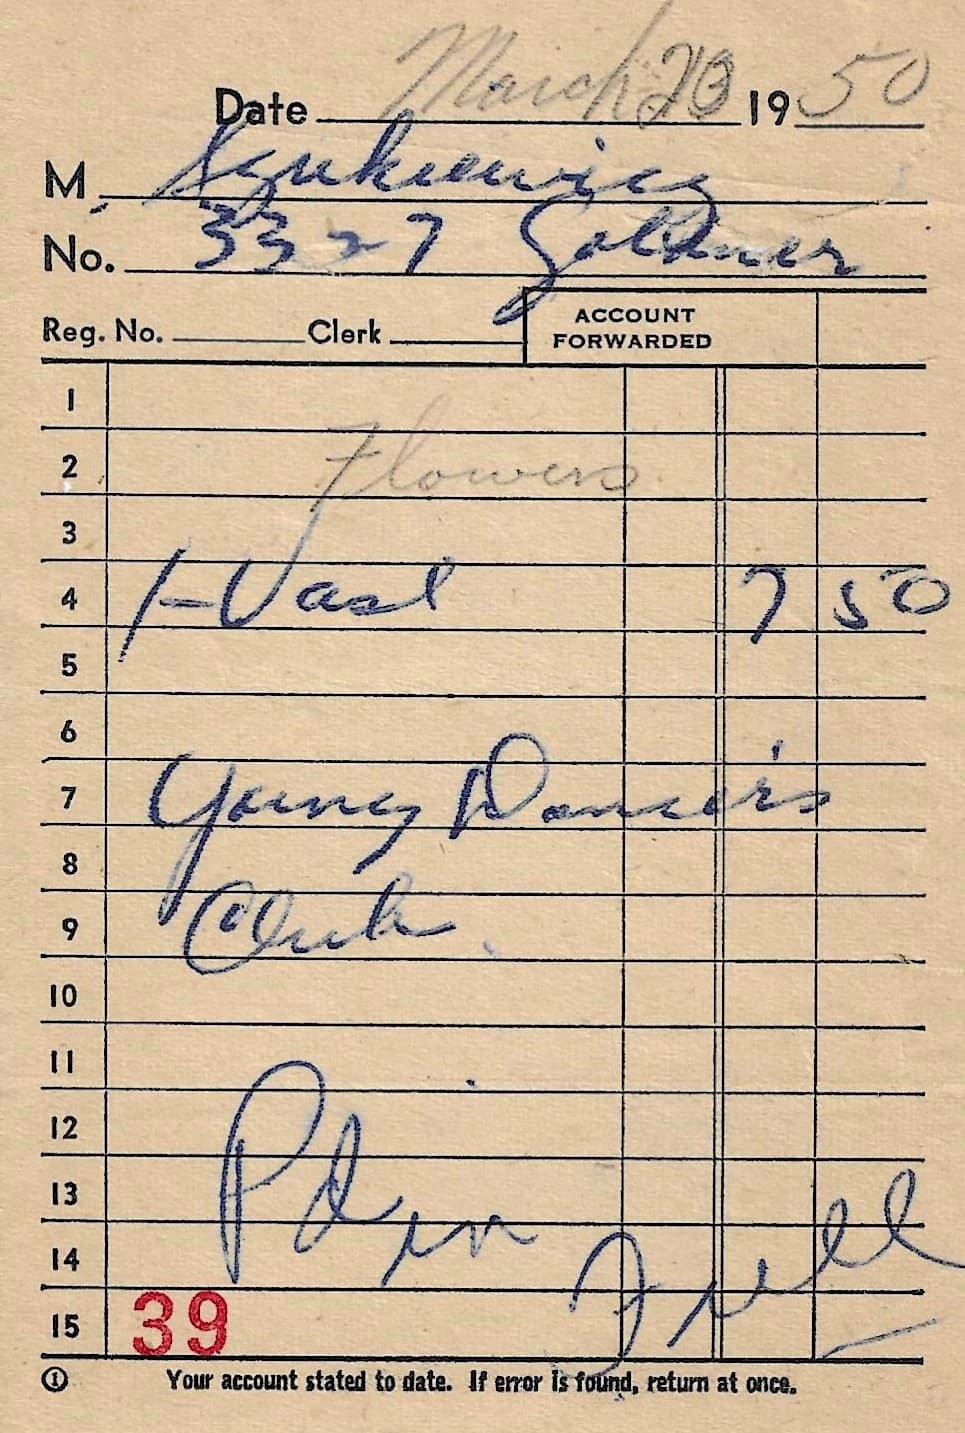 Date March 23 1950
M. Szukiewicz
No. 3327 Goldner
Reg. No. Clerk
ACCOUNT FORWARDED
1
2 Flowers
3
4 1-Vase 7 50
5
6
7 Young Dancer's
8
9 Club
10
11
12
13 Pd in
14 Full
15 39
1 Your account stated to date. If error is found, return at once.